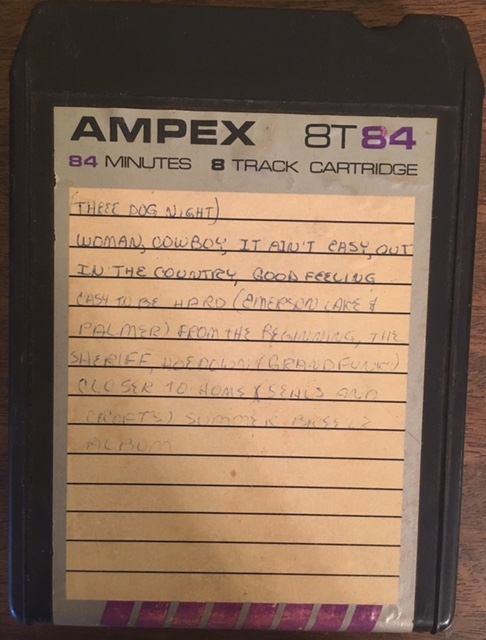 AMPEX 8T84
84 MINUTES 8 TRACK CARTRIDGE
THREE DOG NIGHT)
WOMAN, COWBOY, IT AIN'T EASY, OUT
IN THE COUNTRY, GOOD FEELING
EASY TO BE HARD (EMERSON LAKE &
PALMER) FROM THE BEGINNING, THE
SHERIFF, HOEDOWN (GRAND FUNK)
CLOSER TO HOME (SEALS AND
CROFTS) SUMMER BREEZE
ALBUM